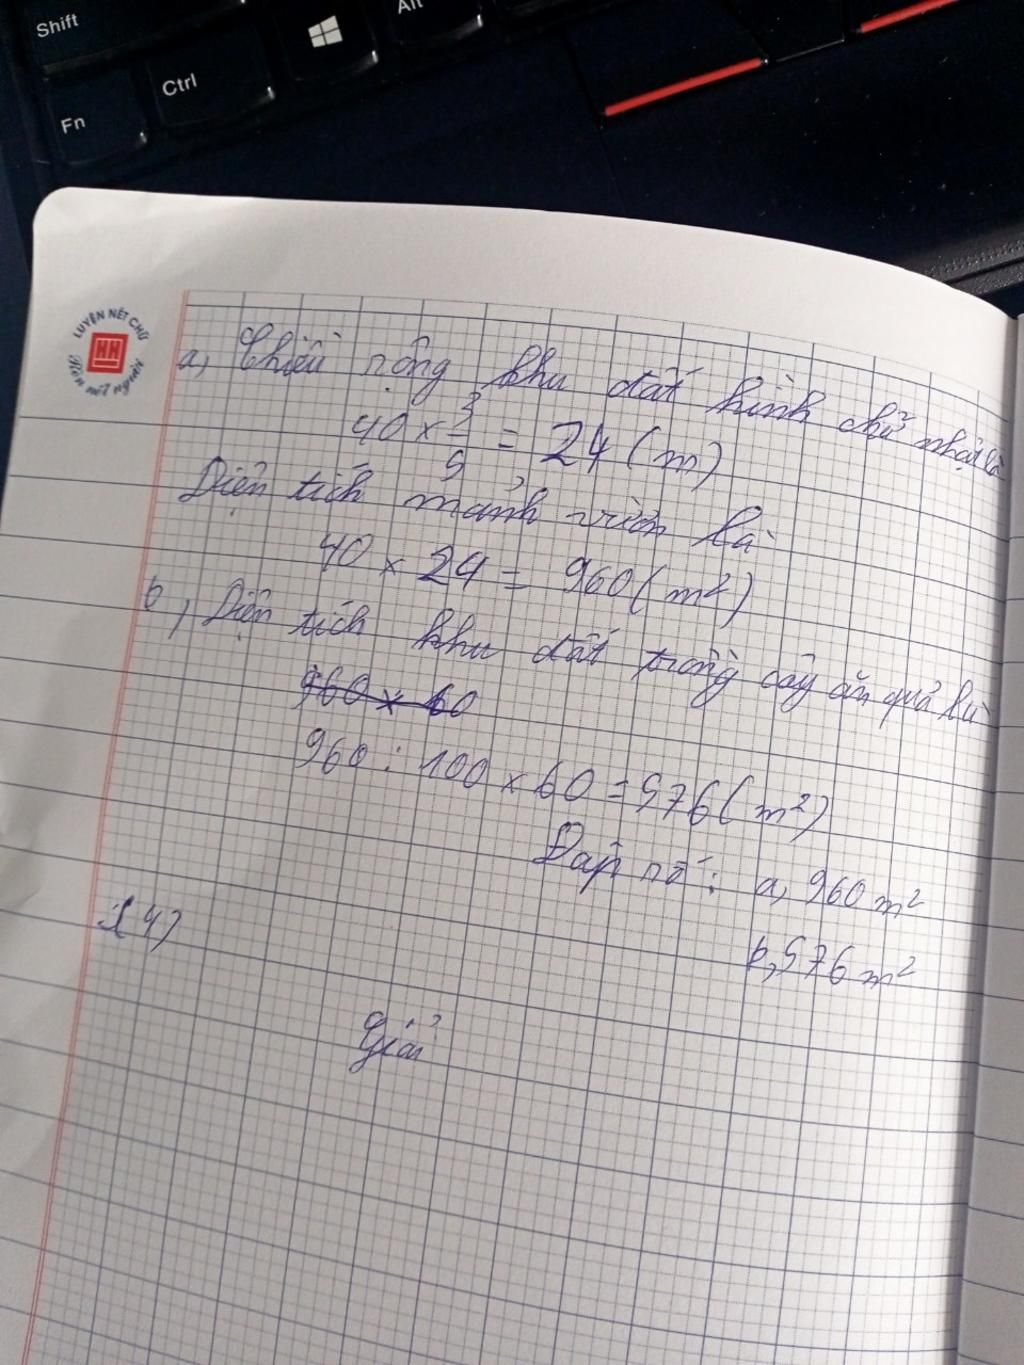 Shift
Alt
Ctrl
Fn
LUYỆN NÉT CHỮ
HH
Rèn nết người
a, Chiều rộng khu đất hình chữ nhật là
40 × 3/5 = 24 (m)
Diện tích mảnh vườn là
40 × 24 = 960 (m²)
b, Diện tích khu đất trồng cây ăn quả là
960 × 60
960 : 100 × 60 = 576 (m²)
Đáp số : a, 960 m²
b, 576 m²
Giải